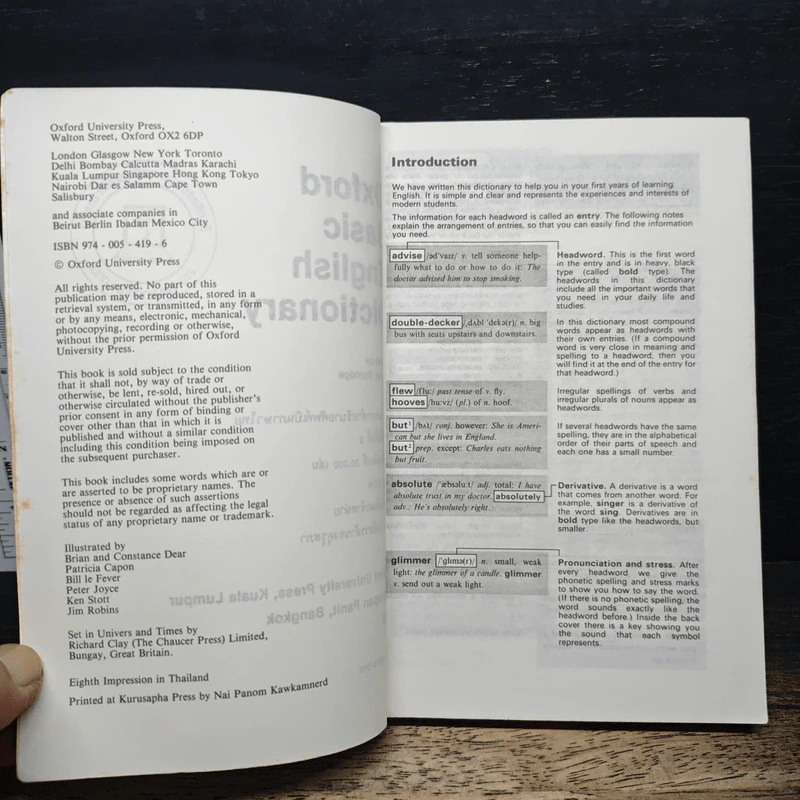 Oxford University Press,
Walton Street, Oxford OX2 6DP
London Glasgow New York Toronto
Delhi Bombay Calcutta Madras Karachi
Kuala Lumpur Singapore Hong Kong Tokyo
Nairobi Dar es Salamm Cape Town
Salisbury
and associate companies in
Beirut Berlin Ibadan Mexico City
ISBN 974 - 005 - 419 - 6
© Oxford University Press
All rights reserved. No part of this
publication may be reproduced, stored in a
retrieval system, or transmitted, in any form
or by any means, electronic, mechanical,
photocopying, recording or otherwise,
without the prior permission of Oxford
University Press.
This book is sold subject to the condition
that it shall not, by way of trade or
otherwise, be lent, re-sold, hired out, or
otherwise circulated without the publisher's
prior consent in any form of binding or
cover other than that in which it is
published and without a similar condition
including this condition being imposed on
the subsequent purchaser.
This book includes some words which are or
are asserted to be proprietary names. The
presence or absence of such assertions
should not be regarded as affecting the legal
status of any proprietary name or trademark.
Illustrated by
Brian and Constance Dear
Patricia Capon
Bill le Fever
Peter Joyce
Ken Stott
Jim Robins
Set in Univers and Times by
Richard Clay (The Chaucer Press) Limited,
Bungay, Great Britain.
Eighth Impression in Thailand
Printed at Kurusapha Press by Nai Panom Kawkamnerd
Introduction
We have written this dictionary to help you in your first years of learning
English. It is simple and clear and represents the experiences and interests of
modern students.
The information for each headword is called an entry. The following notes
explain the arrangement of entries, so that you can easily find the information
you need.
advise /əd'vaɪz/ v. tell someone help-
fully what to do or how to do it: The
doctor advised him to stop smoking.
Headword. This is the first word
in the entry and is in heavy, black
type (called bold type). The
headwords in this dictionary
include all the important words that
you need in your daily life and
studies.
double-decker /ˌdʌbl 'dekə(r)/ n. big
bus with seats upstairs and downstairs.
In this dictionary most compound
words appear as headwords with
their own entries. (If a compound
word is very close in meaning and
spelling to a headword, then you
will find it at the end of the entry for
that headword.)
flew /flu:/ past tense of v. fly.
hooves /hu:vz/ (pl.) of n. hoof.
Irregular spellings of verbs and
irregular plurals of nouns appear as
headwords.
but¹ /bʌt/ conj. however: She is Ameri-
can but she lives in England.
but² prep. except: Charles eats nothing
but fruit.
If several headwords have the same
spelling, they are in the alphabetical
order of their parts of speech and
each one has a small number.
absolute /'æbsəlu:t/ adj. total: I have
absolute trust in my doctor. absolutely
adv.: He's absolutely right.
Derivative. A derivative is a word
that comes from another word. For
example, singer is a derivative of
the word sing. Derivatives are in
bold type like the headwords, but
smaller.
glimmer /'glɪmə(r)/ n. small, weak
light: the glimmer of a candle. glimmer
v. send out a weak light.
Pronunciation and stress. After
every headword we give the
phonetic spelling and stress marks
to show you how to say the word.
(If there is no phonetic spelling, the
word sounds exactly like the
headword before.) Inside the back
cover there is a key showing you
the sound that each symbol
represents.